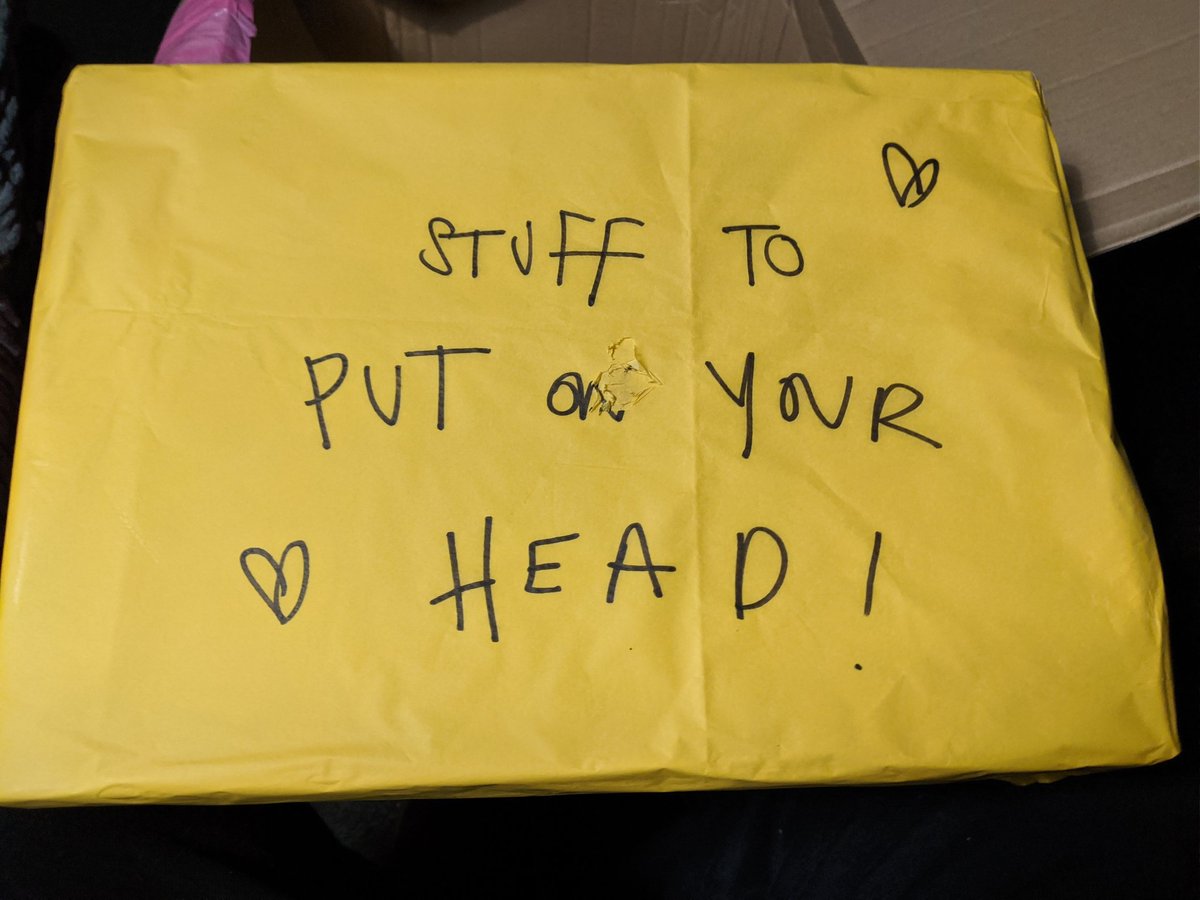 STUFF TO
PUT ON YOUR
HEAD!